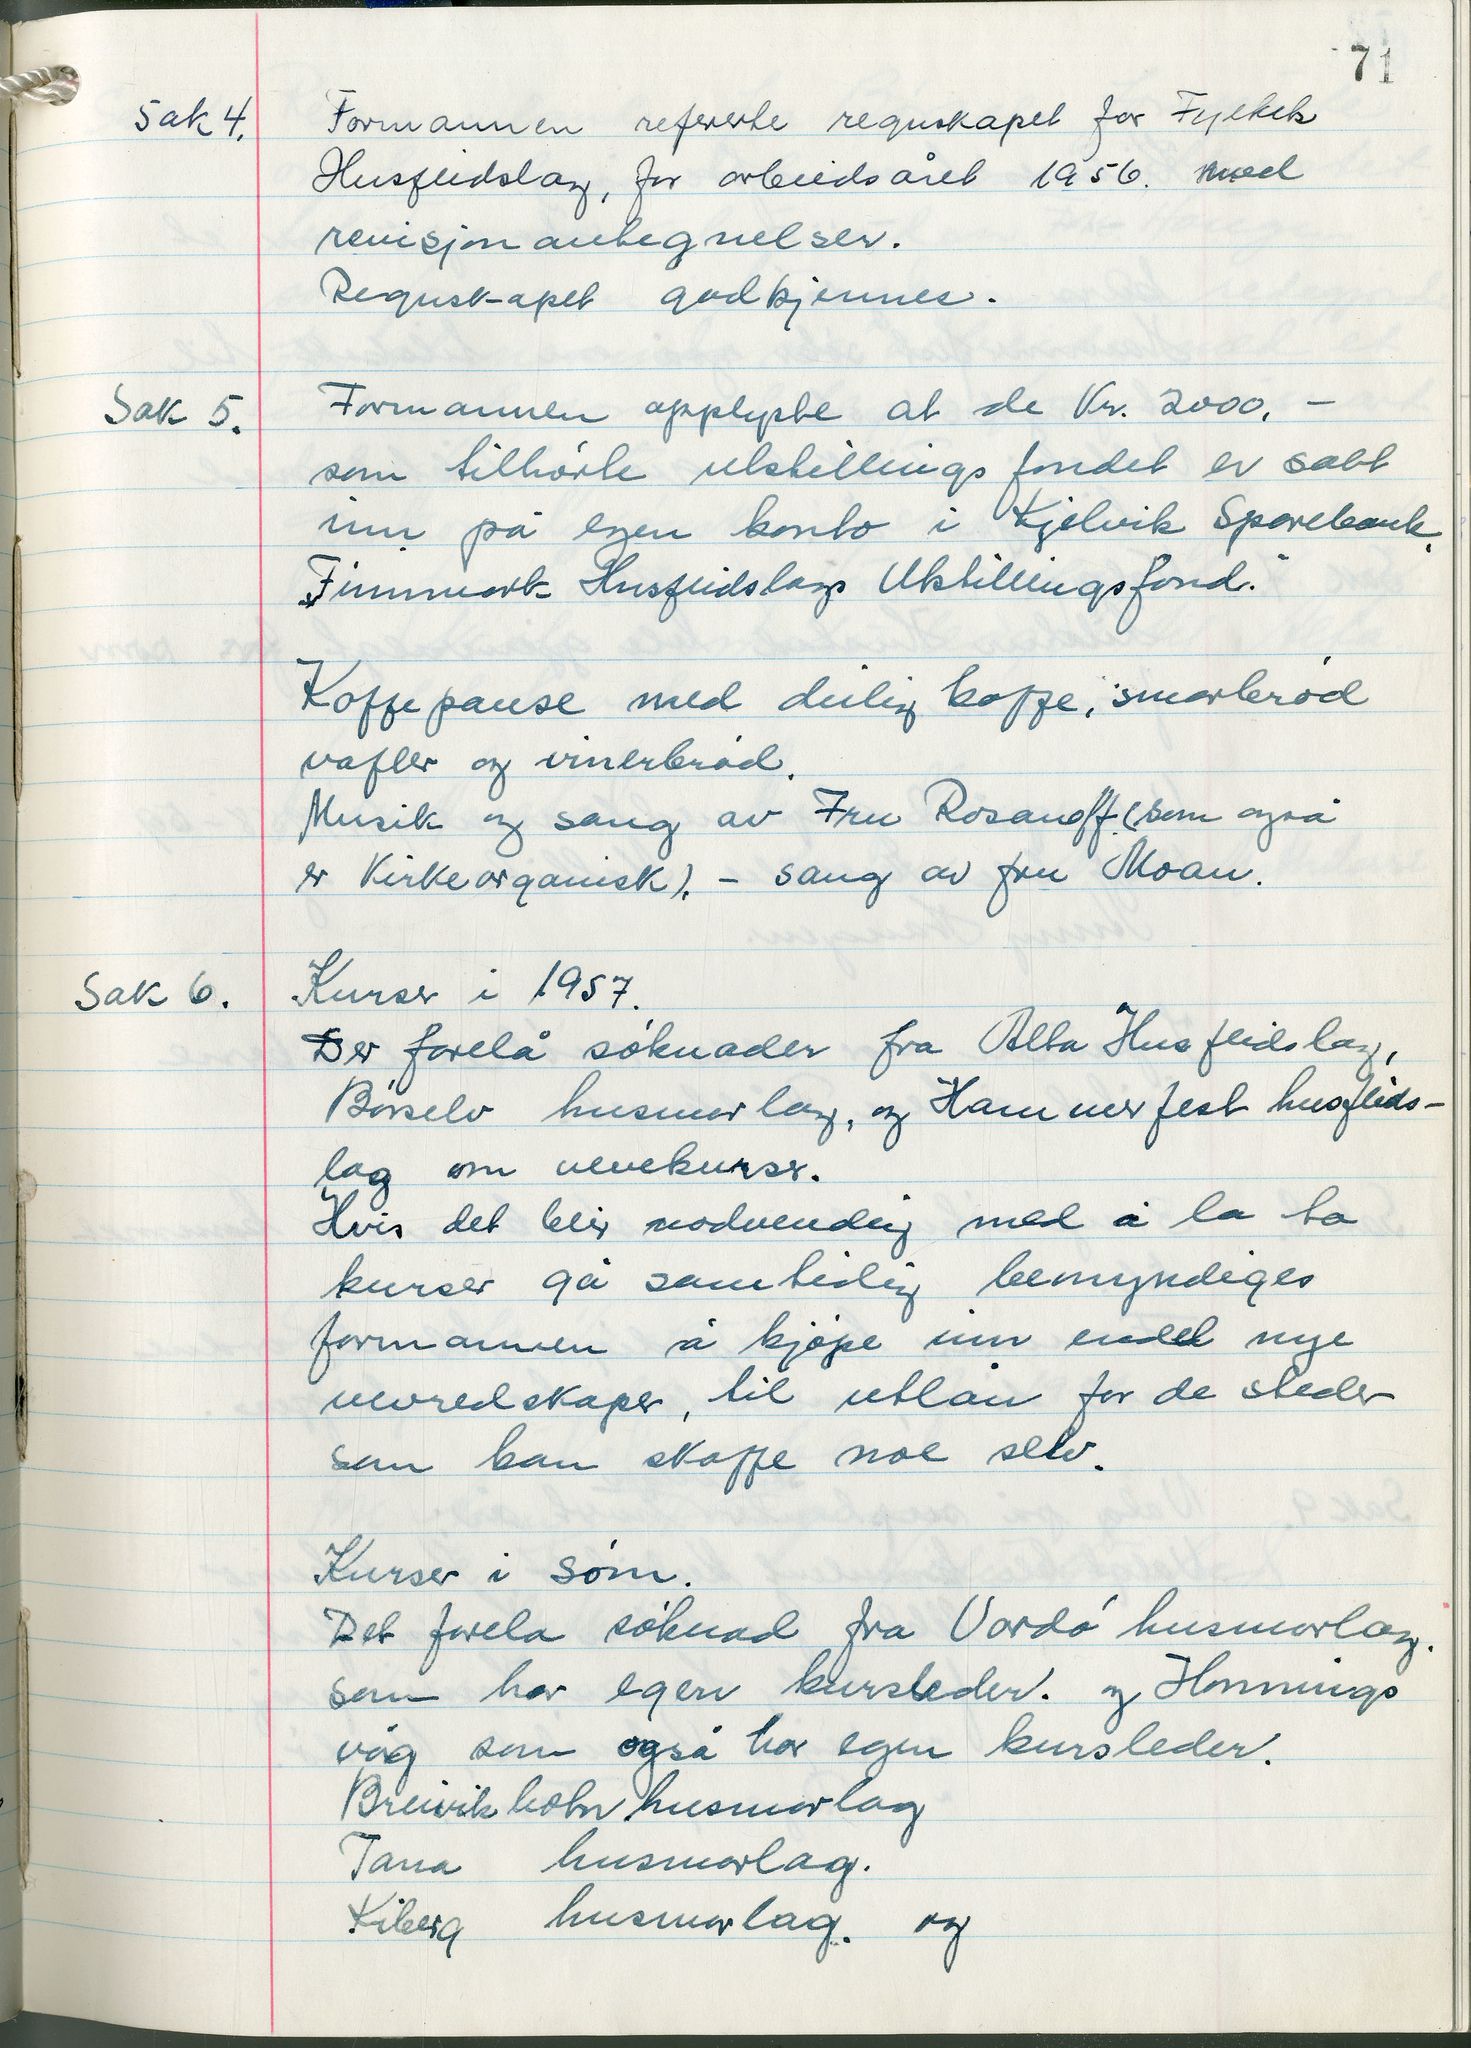 71
Sak 4. Formannen refererte regnskapet for Fylkets
Husflidslag, for arbeidsåret 1956. med
revisjonantegnelser.
Regnskapet godkjennes.
Sak 5. Formannen opplyste at de Kr. 2000. -
som tilhörte utstillings fondet er satt
inn på egen konto i Kjelvik Sparebank.
"Finnmark Husflidslags Utstillingsfond."
Kaffepause med deilig kaffe, smørbröd
vafler og vinerbröd.
Musik og sang av Fru Rosanoff (som også
er Kirkeorganisk). - sang av fru Moan.
Sak 6. Kurser i 1957.
Der forelå söknader fra Alta Husflidslag,
Börselv husmorlag, og Hammerfest husflids-
lag om vevekurser.
Hvis det blir nödvendig med å la to
kurser gå samtidig bemyndiges
formannen å kjöpe inn endel nye
vevredskaper, til utlån for de steder
som kan skaffe noe selv.
Kurser i söm.
Det forela söknad fra Vardö husmorlag.
som har egen kursleder. og Honnings
våg som også har egen kursleder.
Breivikbotn husmorlag
Tana husmorlag.
Kiberg husmorlag. og